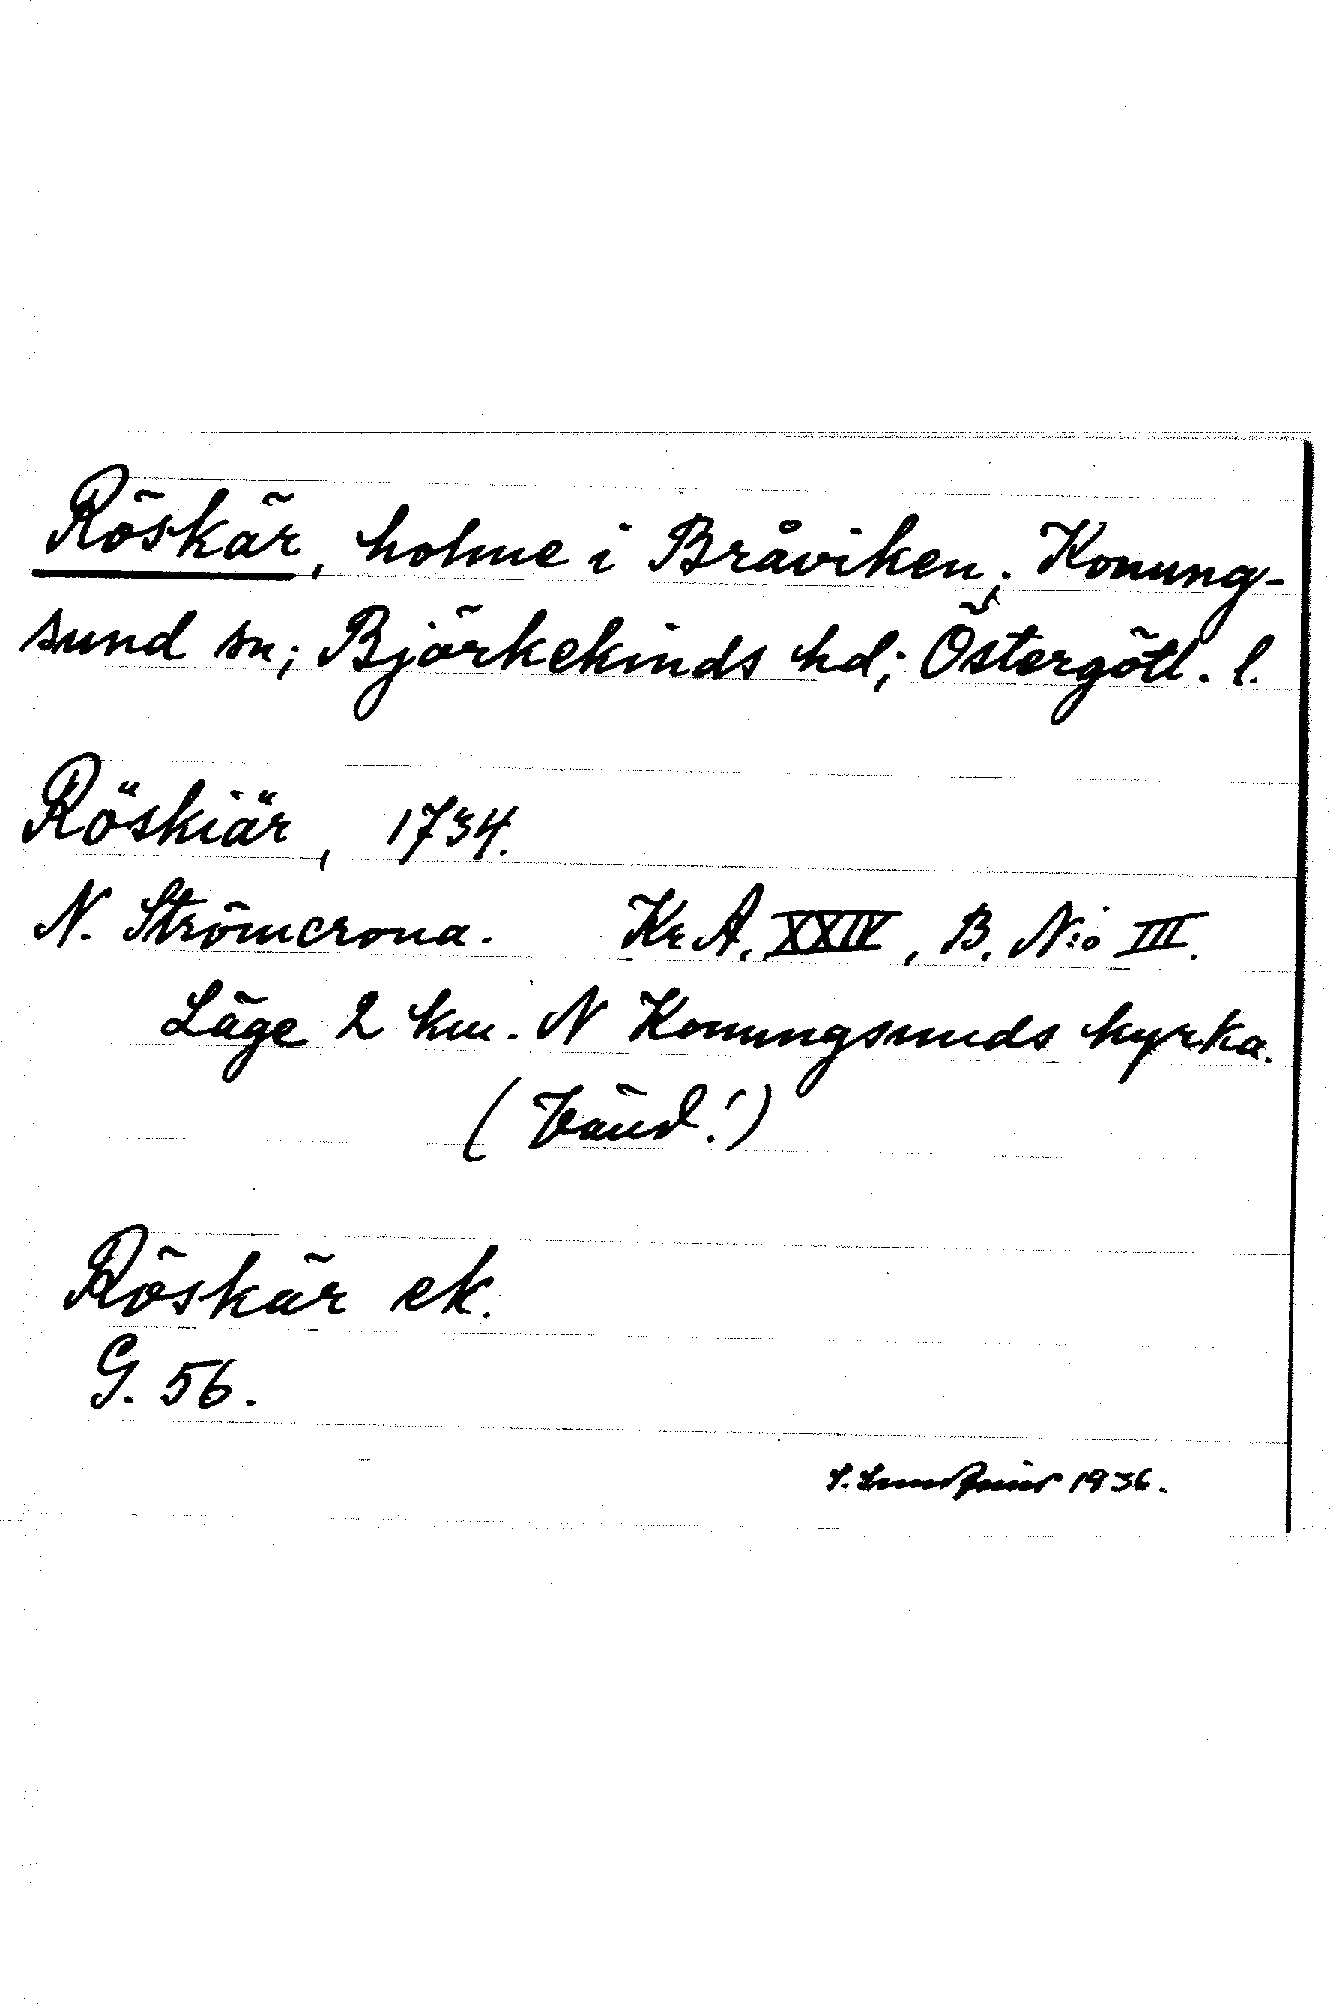 Röskär, holme i Bråviken; Konung-
sund sn; Björkekinds hd; Östergötl. l.
Röskiär, 1734.
N. Strömcrona. Kr A. XXIV, B. N:o III.
Läge 2 km. N Konungsunds kyrka.
(Vänd!)
Röskär ek.
G. 56.
1936.